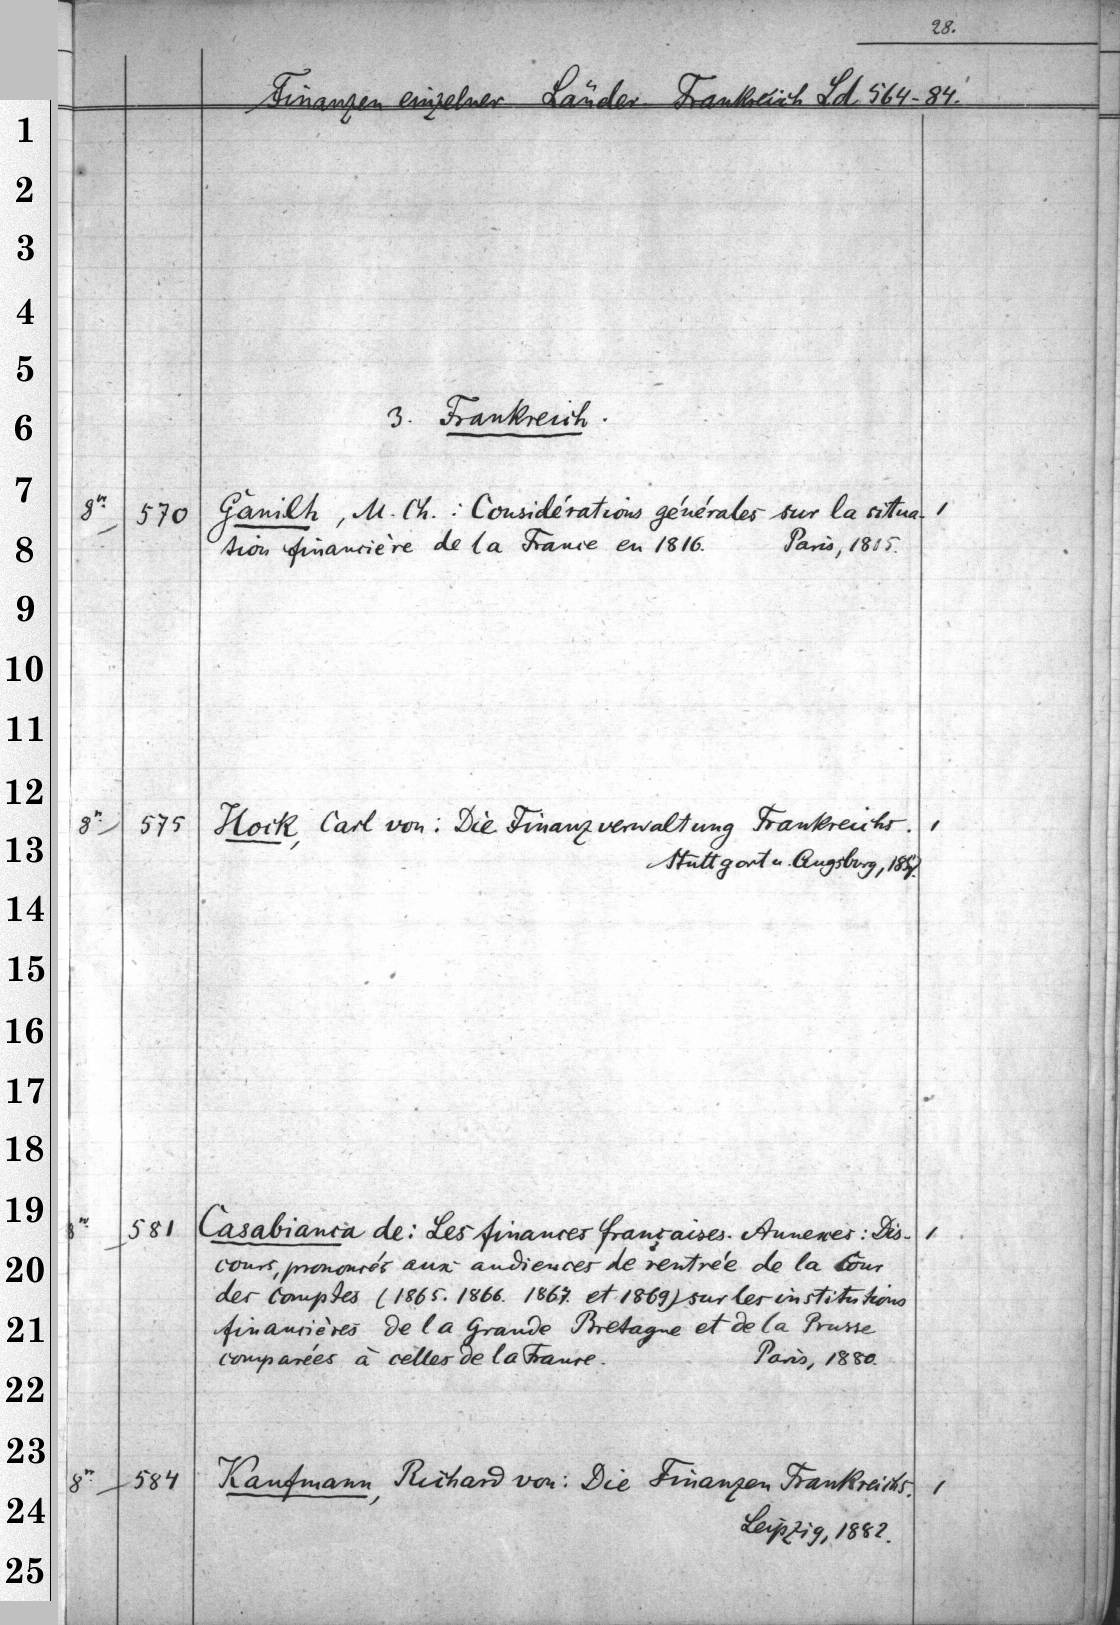 28.
Finanzen einzelner Länder. Frankreich Ld. 564-84.
1
2
3
4
5
3. Frankreich.
6
7
8º 570 Ganilh, M. Ch.: Considérations générales sur la situa- 1
tion financière de la France en 1816. Paris, 1815.
8
9
10
11
12
8º 575 Hock, Carl von: Die Finanzverwaltung Frankreichs. 1
Stuttgart u. Augsburg, 1857.
13
14
15
16
17
18
19
8º 581 Casabianca de: Les finances françaises. Annexes: Dis- 1
cours, prononcés aux audiences de rentrée de la Cour
20
des comptes (1865. 1866. 1867. et 1869) sur les institutions
financières de la Grande Bretagne et de la Prusse
21
comparées à celles de la France. Paris, 1880.
22
23
8º 584 Kaufmann, Richard von: Die Finanzen Frankreichs. 1
24
Leipzig, 1882.
25